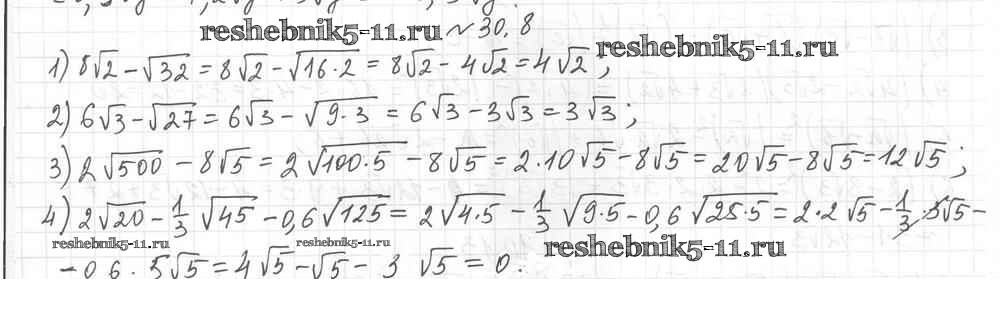 reshebnik5-11.ru № 30.8
1) 8√2 - √32 = 8√2 - √16·2 = 8√2 - 4√2 = 4√2; reshebnik5-11.ru
2) 6√3 - √27 = 6√3 - √9·3 = 6√3 - 3√3 = 3√3;
3) 2√500 - 8√5 = 2√100·5 - 8√5 = 2·10√5 - 8√5 = 20√5 - 8√5 = 12√5;
4) 2√20 - 1/3 √45 - 0,6√125 = 2√4·5 - 1/3 √9·5 - 0,6√25·5 = 2·2√5 - 1/3·3√5 -
reshebnik5-11.ru reshebnik5-11.ru reshebnik5-11.ru
- 0 6·5√5 = 4√5 - √5 - 3 √5 = 0.